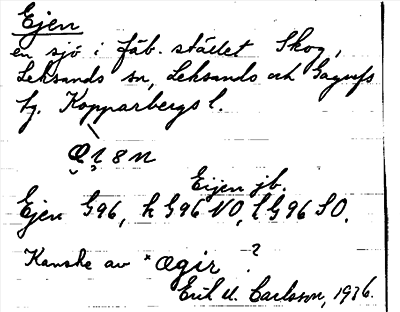 Ejen
en sjö i fäb. stället Skog,
Leksands sn, Leksands och Gagnefs
tg. Kopparbergs l.
Eijen jb.
Ejen G96, h G96 NO, l G96 SO.
Kanske av *ægir ?
Erik U. Carlsson, 1936.